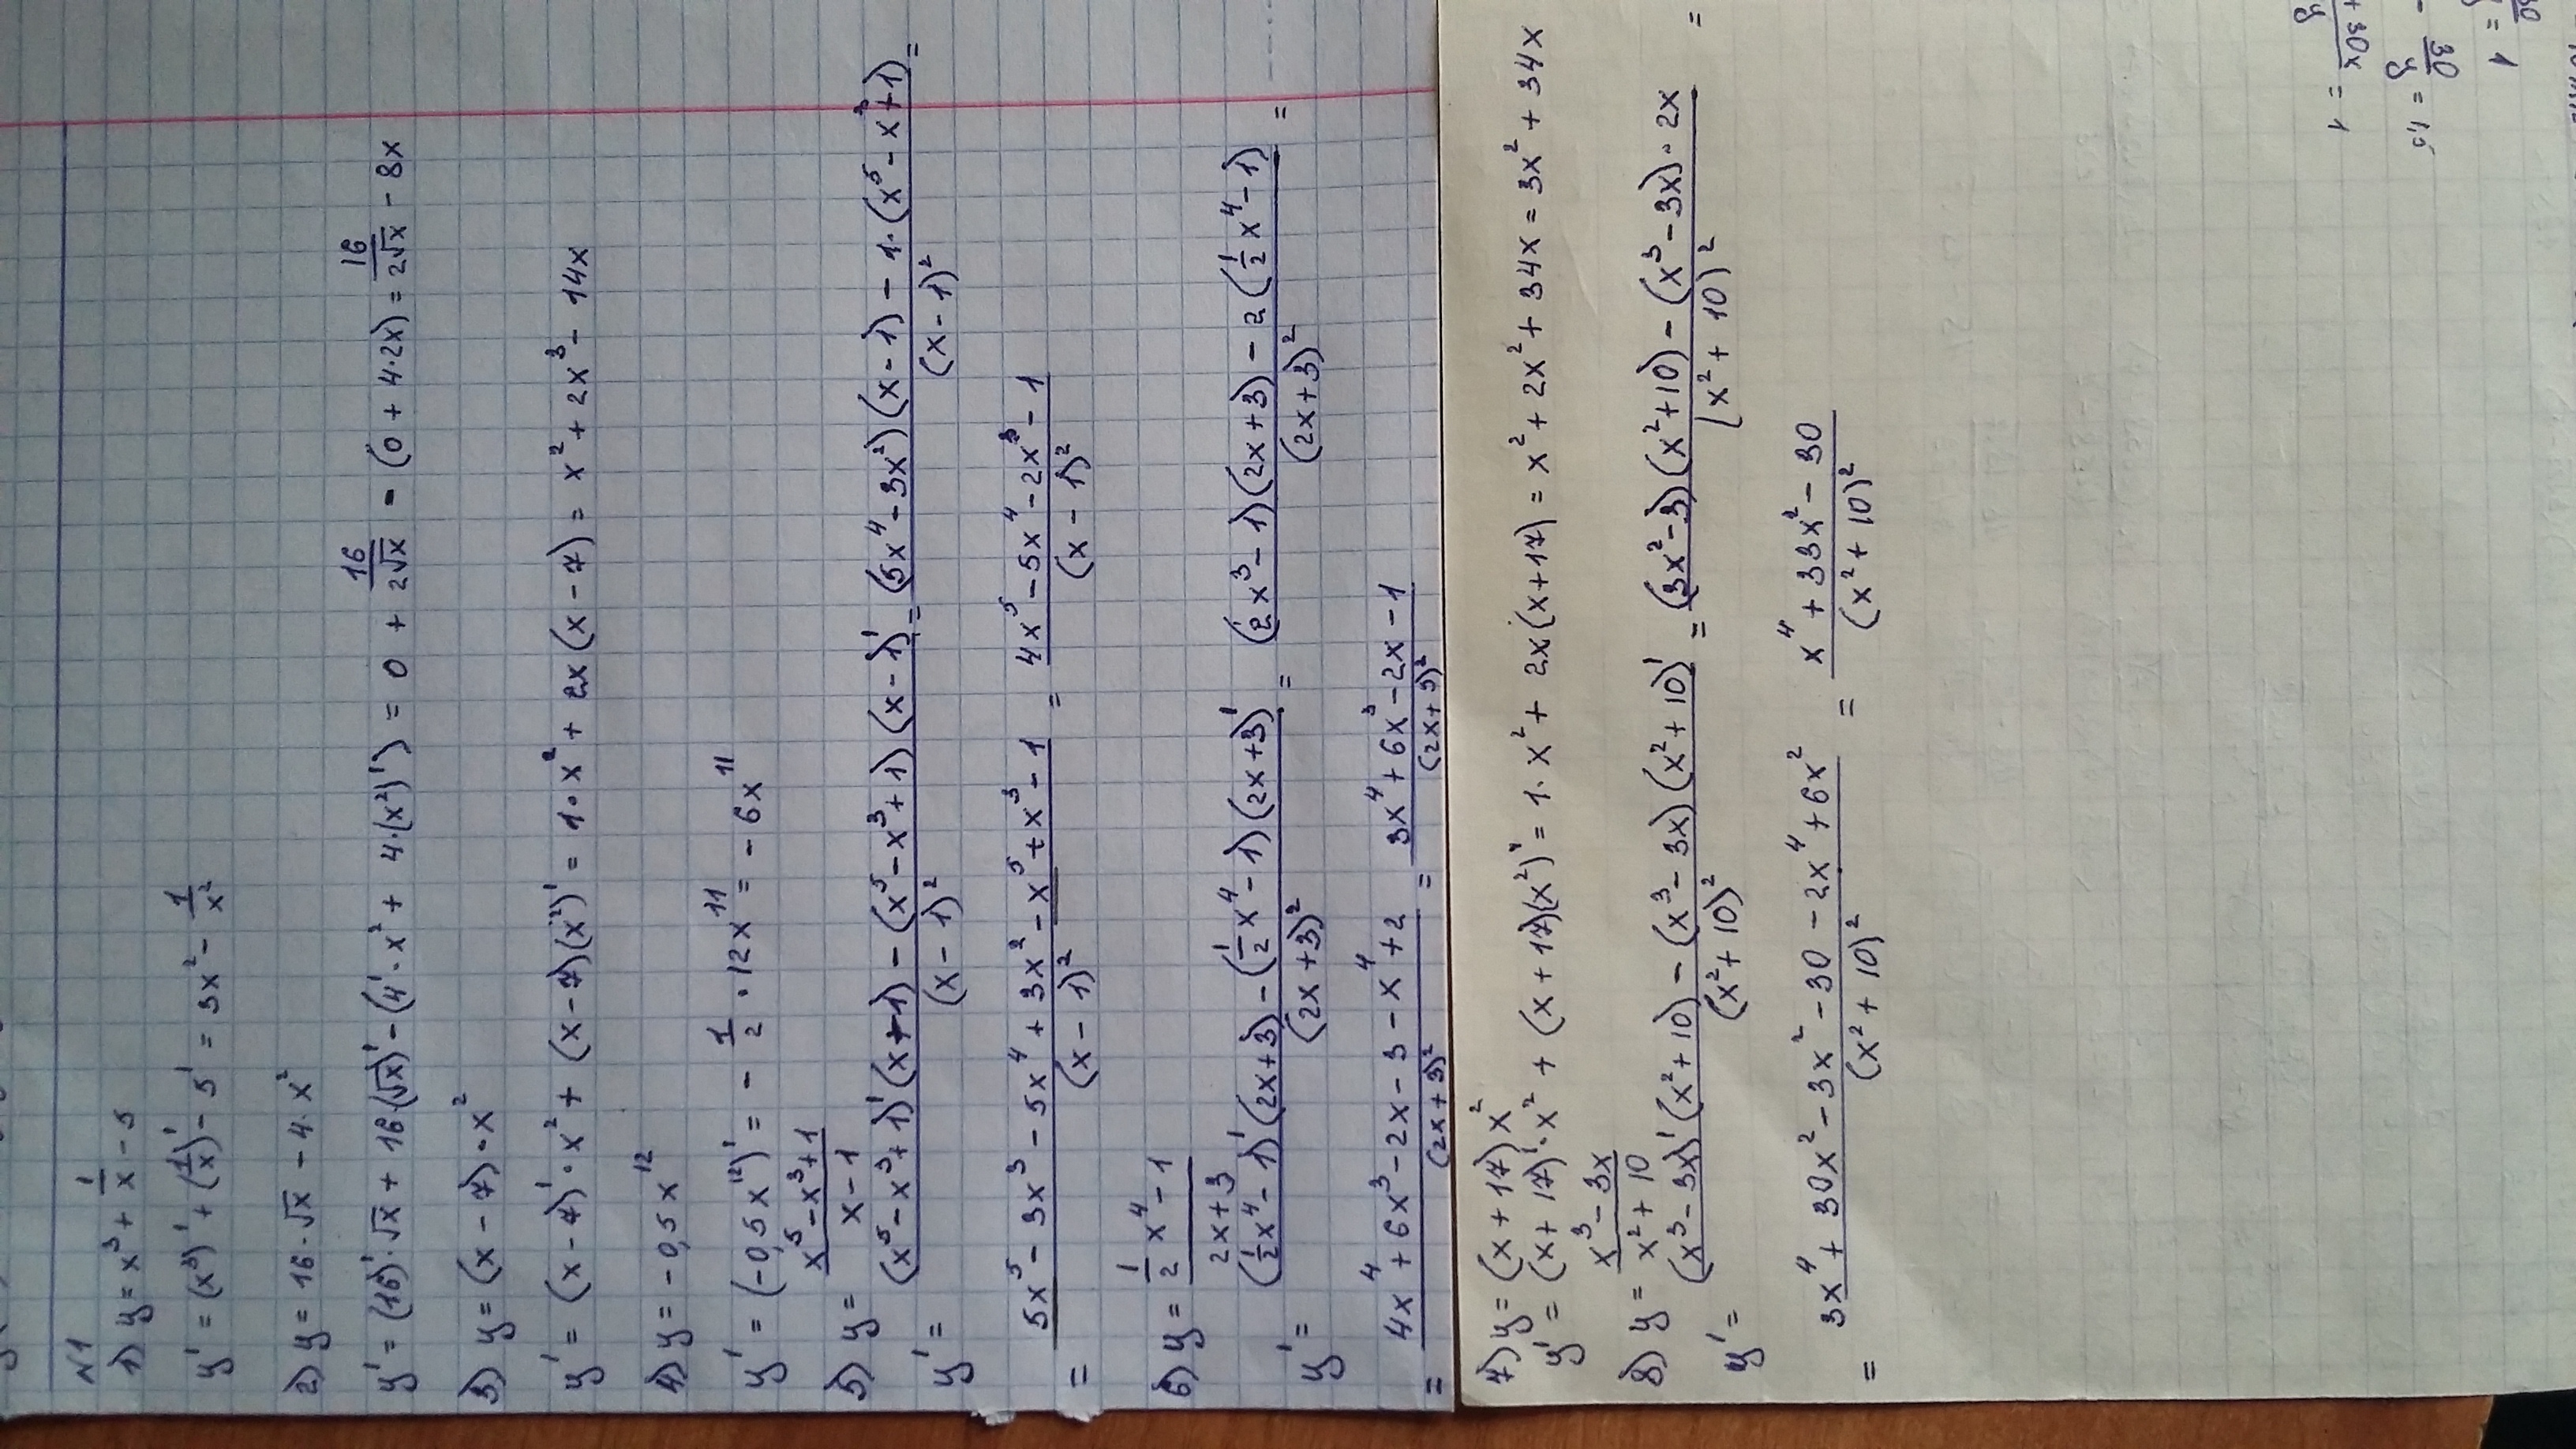 N1
1) y = x³ + 1/x - 5
y' = (x³)' + (1/x)' - 5' = 3x² - 1/x²
2) y = 16·√x - 4·x²
y' = (16)'·√x + 16·(√x)' - (4'·x² + 4·(x²)') = 0 + 16/2√x - (0 + 4·2x) = 16/2√x - 8x
3) y = (x - 7)·x²
y' = (x - 7)'·x² + (x - 7)(x²)' = 1·x² + 2x(x - 7) = x² + 2x³ - 14x
4) y = -0,5x¹²
y' = (-0,5x¹²)' = -1/2·12x¹¹ = -6x¹¹
5) y = (x⁵ - x³ + 1)/(x - 1)
y' = ((x⁵ - x³ + 1)'(x - 1) - (x⁵ - x³ + 1)(x - 1)')/(x - 1)² = ((5x⁴ - 3x²)(x - 1) - 1·(x⁵ - x³ + 1))/(x - 1)² =
= (5x⁵ - 3x³ - 5x⁴ + 3x² - x⁵ + x³ - 1)/(x - 1)² = (4x⁵ - 5x⁴ - 2x³ - 1)/(x - 1)²
6) y = (1/2 x⁴ - 1)/(2x + 3)
y' = ((1/2 x⁴ - 1)'(2x + 3) - (1/2 x⁴ - 1)(2x + 3)')/(2x + 3)² = ((2x³ - 1)(2x + 3) - 2(1/2 x⁴ - 1))/(2x + 3)² =
= (4x⁴ + 6x³ - 2x - 3 - x⁴ + 2)/(2x + 3)² = (3x⁴ + 6x³ - 2x - 1)/(2x + 3)²
7) y = (x + 17)x²
y' = (x + 17)'·x² + (x + 17)(x²)' = 1·x² + 2x(x + 17) = x² + 2x² + 34x = 3x² + 34x
8) y = (x³ - 3x)/(x² + 10)
y' = ((x³ - 3x)'(x² + 10) - (x³ - 3x)(x² + 10)')/(x² + 10)² = ((3x² - 3)(x² + 10) - (x³ - 3x)·2x)/(x² + 10)² =
= (3x⁴ + 30x² - 3x² - 30 - 2x⁴ + 6x²)/(x² + 10)² = (x⁴ + 33x² - 30)/(x² + 10)²